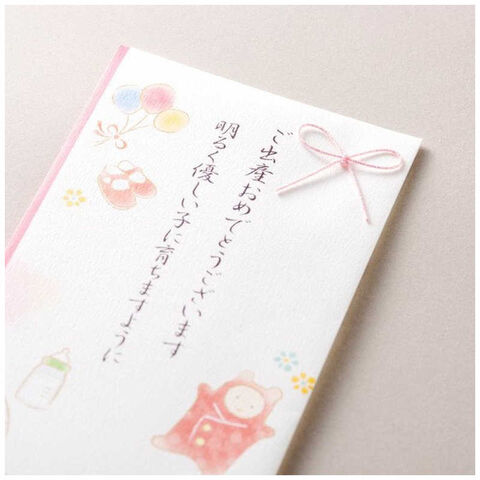 ご出産おめでとうございます
明るく優しい子に育ちますように